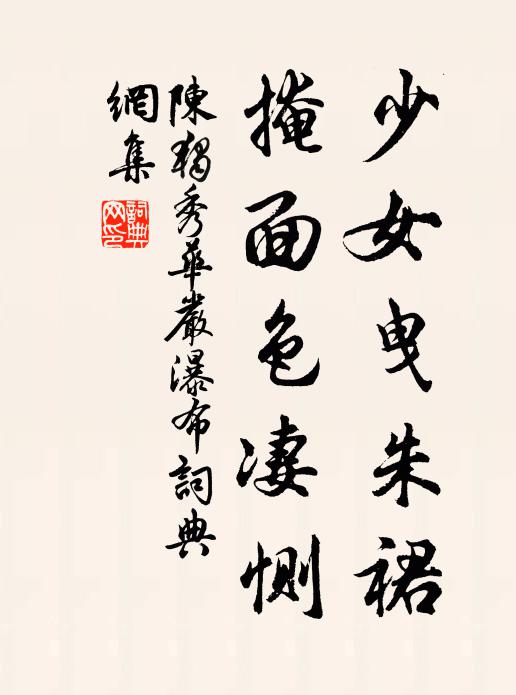 少女曳朱裙
掩面色凄惻
陳獨秀華嚴瀑布詞典
網集
詞典
网印